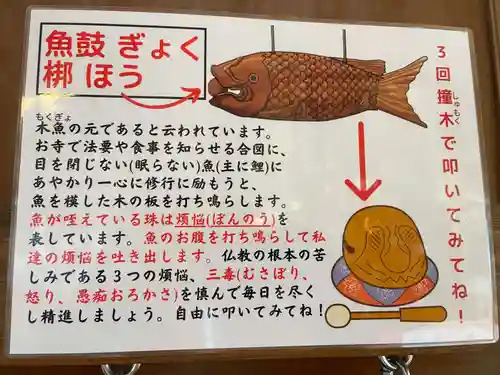 魚鼓 ぎょく
梆 ほう
もくぎょ
木魚の元であると云われています。
お寺で法要や食事を知らせる合図に、
目を閉じない(眠らない)魚(主に鯉)に
あやかり一心に修行に励もうと、
魚を模した木の板を打ち鳴らします。
魚が咥えている珠は煩悩(ぼんのう)を
表しています。魚のお腹を打ち鳴らして私
達の煩悩を吐き出します。仏教の根本の苦
しみである3つの煩悩、三毒(むさぼり、
怒り、愚痴おろかさ)を慎んで毎日を尽く
し精進しましょう。自由に叩いてみてね!
3回撞木で叩いてみてね!
しゅもく